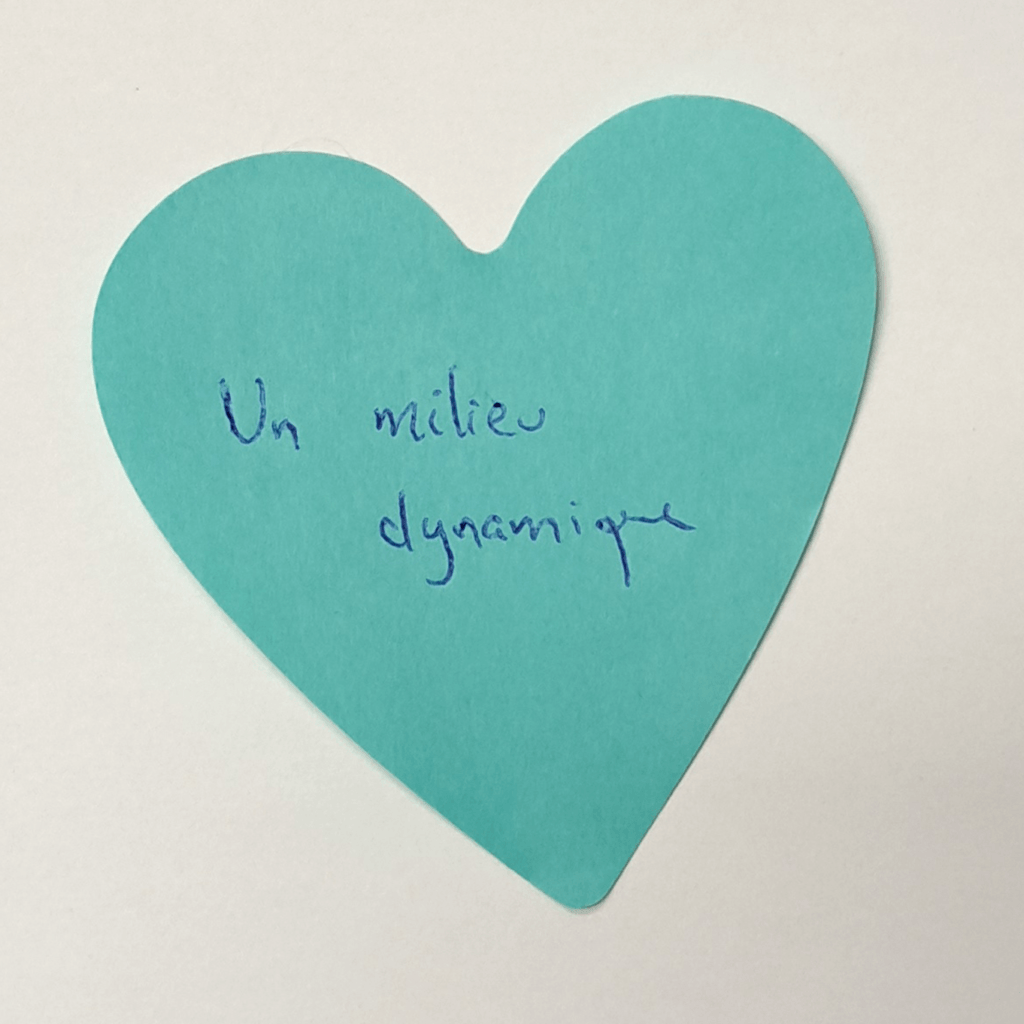 Un milieu
dynamique